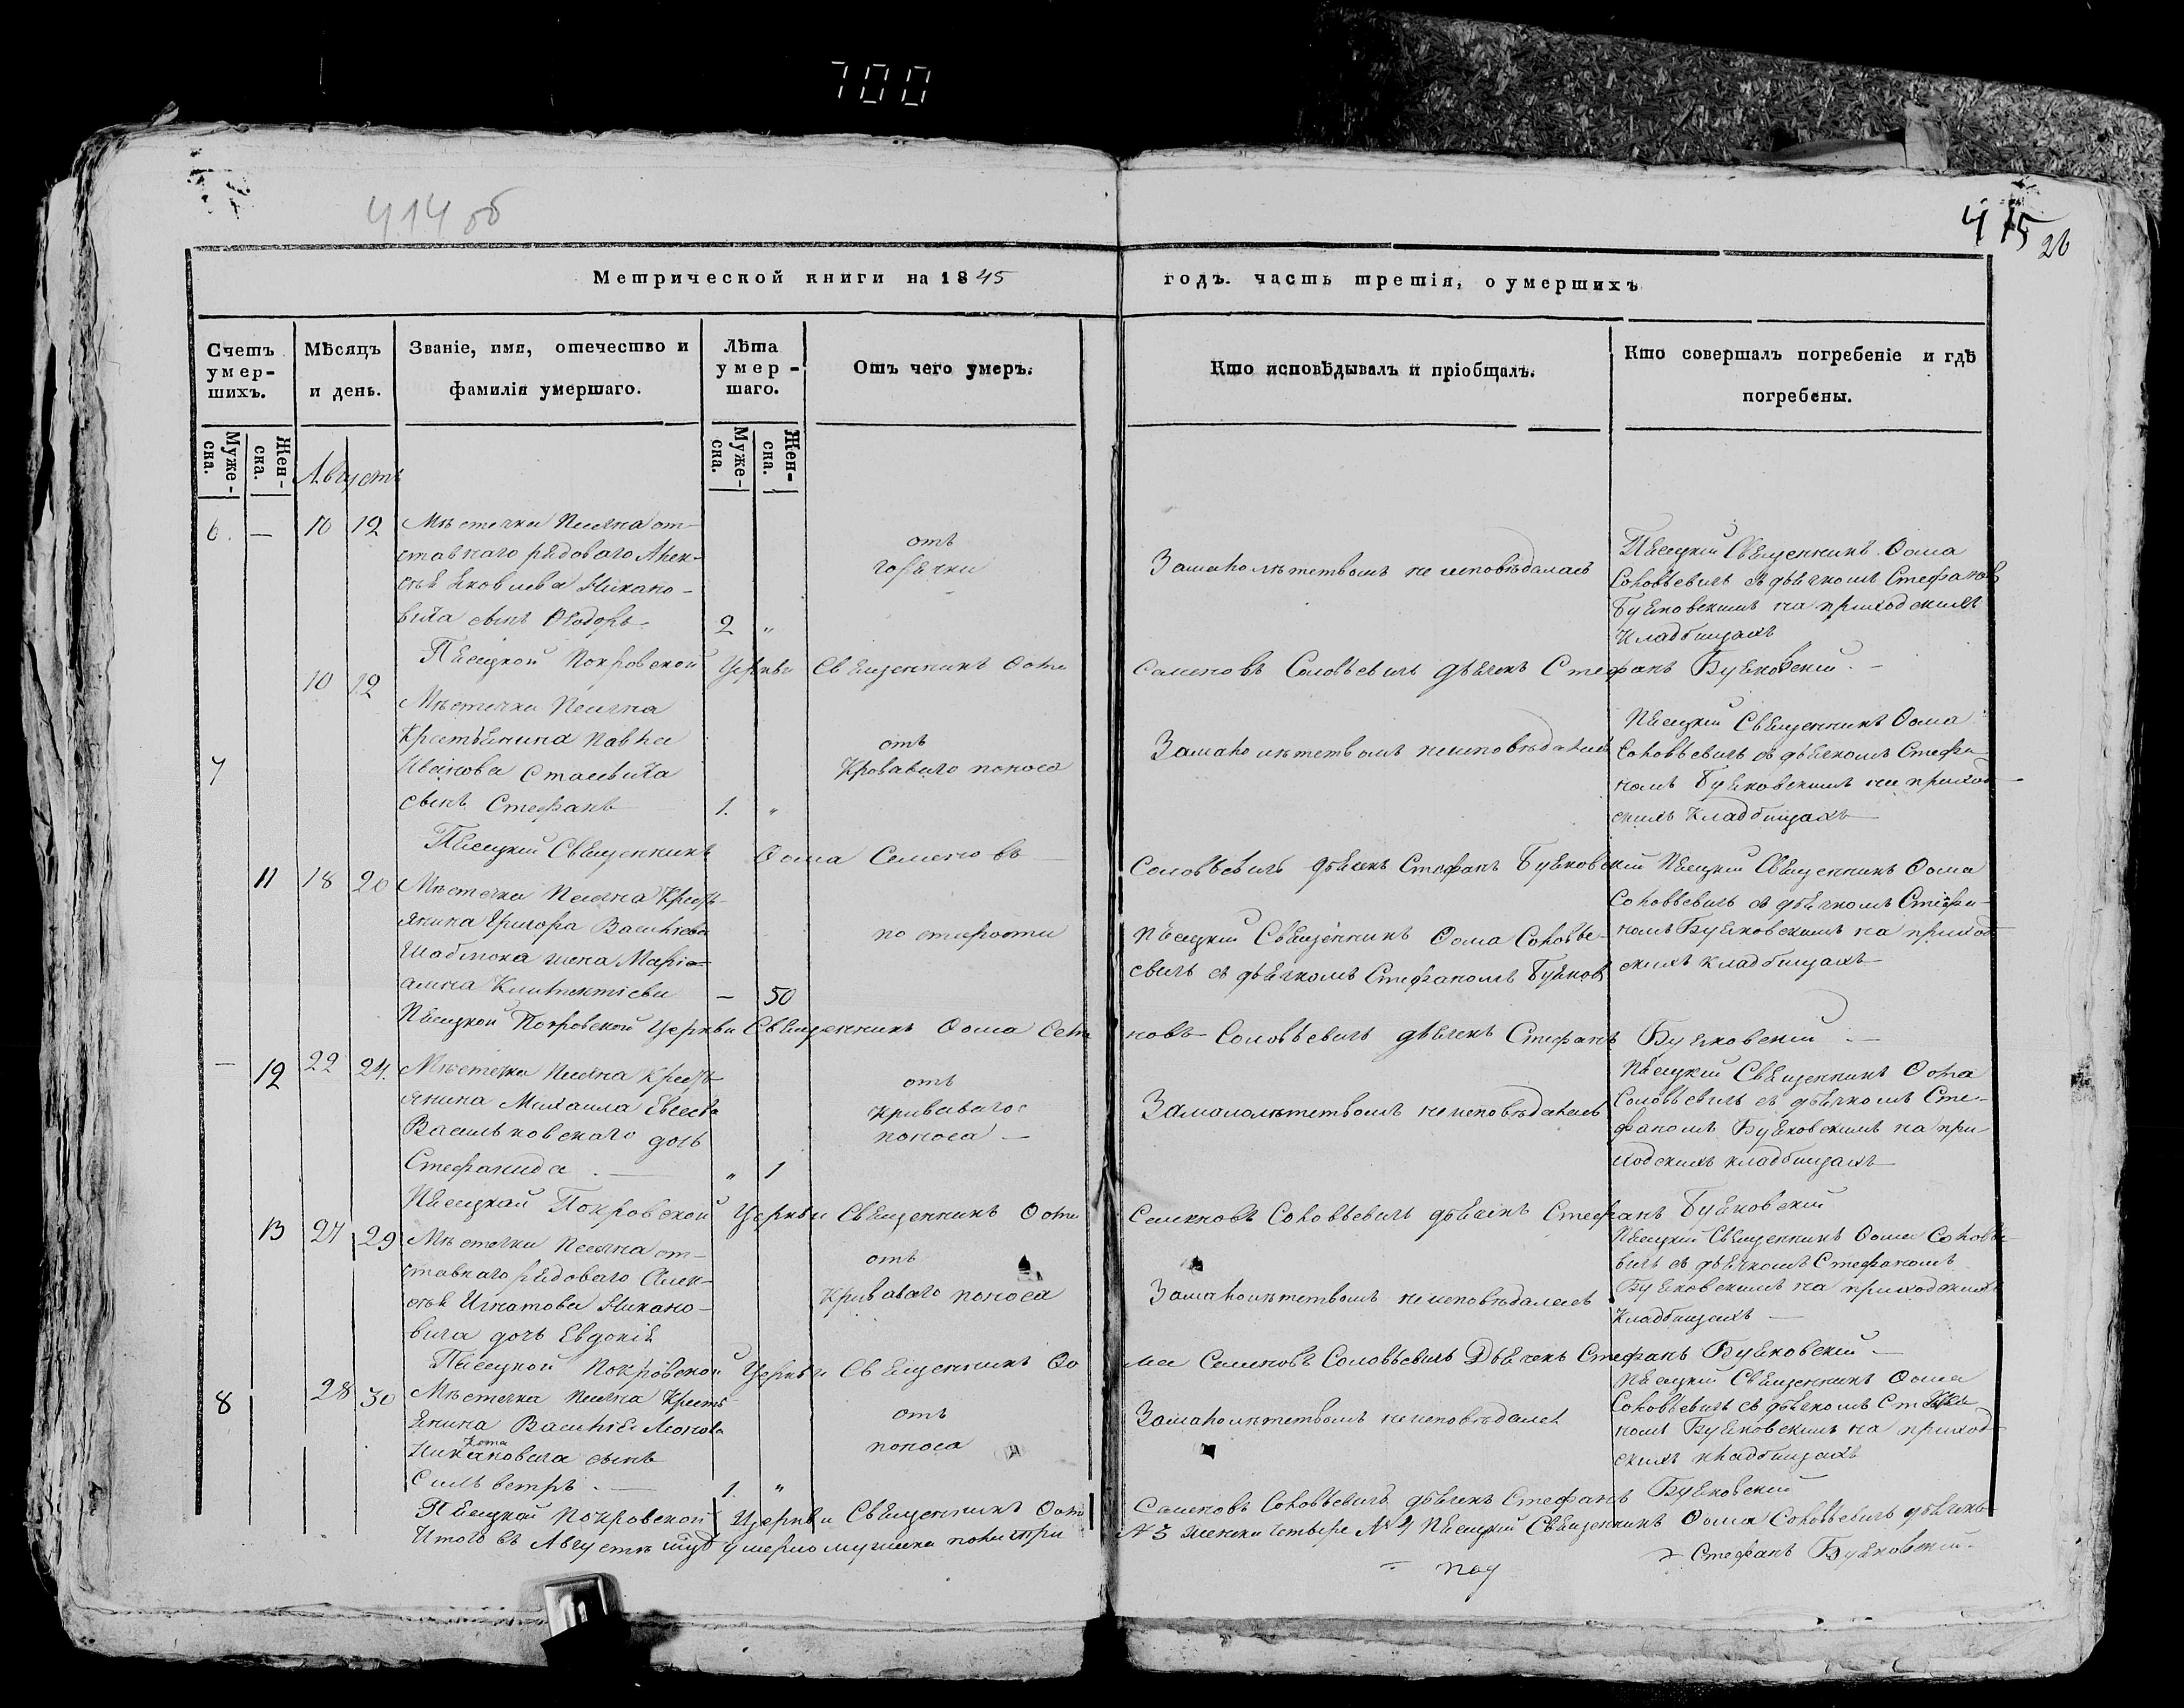 700
414 об
415
26
Метрической книги на 1845 годъ. часть третія, о умершихъ
Счетъ умер-шихъ.
Мѣсяцъ и день.
Званіе, имя, отечество и фамилія умершаго.
Лѣта умер-шаго.
Отъ чего умеръ.
Кто исповѣдывалъ и пріобщалъ.
Кто совершалъ погребеніе и гдѣ погребены.
Муже-ска.
Жен-ска.
Муже-ска.
Жен-ска.
Августъ
6. — 10 12
Мѣстечка Песячна от-
ставнаго рядоваго Алек-
сѣя Яковлева Никано-
вича сынъ Ѳеодоръ 2 „
отъ
горячки
За малолѣтствомъ не исповѣдалась
Пѣсецкій Священникъ Ѳома
Соловьевичъ съ дьячкомъ Стефаномъ
Буяковскимъ на приходскихъ
Кладбищахъ
Пѣсецкой Покровской Церкви Священникъ Ѳома Семеновъ Соловьевичъ дьячекъ Стефанъ Буяковскій. —
7 10 12
Мѣстечка Песячна
Крестьянина Павла
Иванова Стасевича
сынъ Стефанъ 1. „
отъ
Кроваваго поноса
За малолѣтствомъ неисповѣдался
Пѣсецкій Священникъ Ѳома
Соловьевичъ съ дьячкомъ Стефа-
номъ Буяковскимъ на приход-
скихъ Кладбищахъ
Пѣсецкій Священникъ Ѳома Семеновъ Соловьевичъ дьячекъ Стефанъ Буяковскій
11 18 20
Мѣстечка Песячна Крестъ-
янина Григора Васильева
жена Марі-
анна — 50
по старости
Пѣсецкій Священникъ Ѳома Соловье-
евичъ съ дьячкомъ Стефаномъ Буяков
Пѣсецкій Священникъ Ѳома
Соловьевичъ съ дьячкомъ Стефа-
номъ Буяковскимъ на приход-
скихъ кладбищахъ
Пѣсецкой Покровской Церкви Священникъ Ѳома Семеновъ Соловьевичъ дьячекъ Стефанъ Буяковскій —
— 12 22 24.
Мѣстечка Песячна Крестъ-
янина Михаила Евсеева
Васильковскаго дочь
Стефанида. — „ 1
отъ
Криваваго
поноса —
За малолѣтствомъ неисповѣдалась
Пѣсецкій Священникъ Ѳома
Соловьевичъ съ дьячкомъ Сте-
фаномъ Буяковскимъ на при-
ходскихъ кладбищахъ
Пѣсецкой Покровской Церкви Священникъ Ѳома Семеновъ Соловьевичъ дьячекъ Стефанъ Буяковскій
13 27 29
Мѣстечка Песячна от-
ставнаго рядоваго Алек-
сѣя Игнатова Никано-
вича дочь Евдокія
отъ
Криваваго поноса
За малолѣтствомъ неисповѣдалась
Пѣсецкій Священникъ Ѳома Соловье-
вичъ съ дьячкомъ Стефаномъ
Буяковскимъ на приходскихъ
Кладбищахъ —
Пѣсецкой Покровской Церкви Священникъ Ѳома Семеновъ Соловьевичъ Дьячекъ Стефанъ Буяковскій. —
8 28 30
Мѣстечка Песячна Крестъ
янина Василія Леонова
Никановича сынъ
Сильвестръ. — 1. „
отъ
поноса
За малолѣтствомъ неисповѣдался
Пѣсецкій Священникъ Ѳома
Соловьевичъ съ дьячкомъ Стефа
номъ Буяковскимъ на приход-
скихъ кладбищахъ
Пѣсецкой Покровской Церкви Священникъ Ѳома Семеновъ Соловьевичъ дьячекъ Стефанъ Буяковскій
Итого въ Августѣ умерло мужеска пола три № 3 женска четыре № 4 Пѣсецкій Священникъ Ѳома Соловьевичъ дьячекъ
Стефанъ Буяковскій.